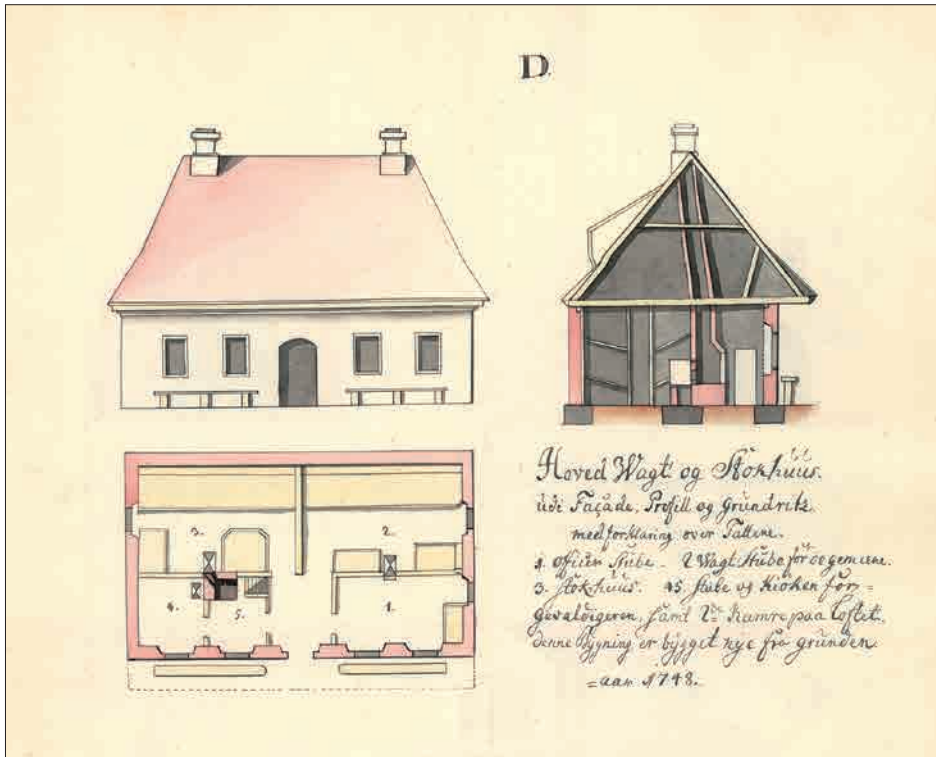 D.
3.
2.
4.
5.
1.
Hoved Wagt og Stokhüüs.
üdi Façade, Profill og Grundritz
med forklaring over Tallene.
1. Officier Stübe. 2 Wagt Stübe for de gemeene.
3. Stokhüüs. 45. Stübe og Kiöken for
gevaldigeren, samt 2de Kamre paa Loftet.
denne Bygning er bygget nye fra grunden
= aar 1748.